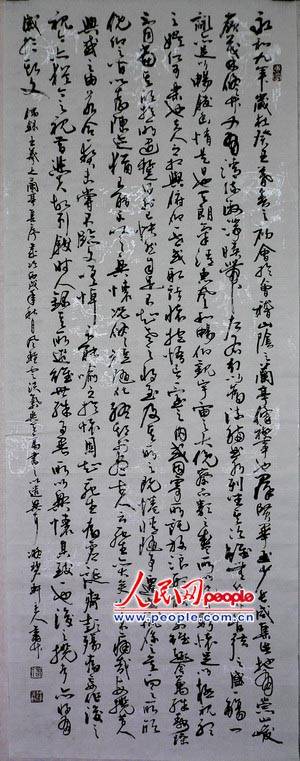 永和九年歲在癸丑暮春之初會於會稽山陰之蘭亭修禊事也群賢畢至少長咸集此地有崇山峻
嶺茂林修竹又有清流激湍映帶左右引以為流觴曲水列坐其次雖無絲竹管弦之盛一觴一
詠亦足以暢敘幽情是日也天朗氣清惠風和暢仰觀宇宙之大俯察品類之盛所以遊目騁懷足以極視聽
之娛信可樂也夫人之相與俯仰一世或取諸懷抱悟言一室之內或因寄所託放浪形骸之外雖趣舍萬殊靜躁
不同當其欣於所遇暫得於己快然自足不知老之將至及其所之既倦情隨事遷感慨係之矣向之所欣
俯仰之間以為陳迹猶不能不以之興懷況修短隨化終期於盡古人云死生亦大矣豈不痛哉每攬昔人
興感之由若合一契未嘗不臨文嗟悼不能喻之於懷固知一死生為虛誕齊彭殤為妄作後之
視今亦由今之視昔悲夫故列敘時人錄其所述雖世殊事異所以興懷其致一也後之攬者亦將有
感於斯文 錄王羲之蘭亭集序 歲次丙戌年秋月
人民网
people